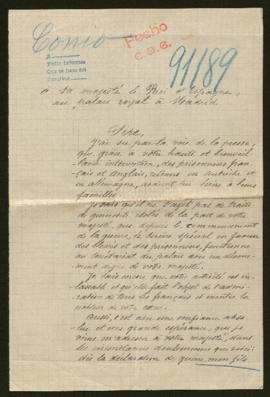 Fecho
C.O.G.
91/89
A
Pedir Informes
à Sa majesté le Roi d'Espagne,
au palais royal à Madrid
Sire,
J'ai su par la voie de la presse
que, grâce à votre haute et bienveil-
lante intervention, des prisonniers fran-
çais et anglais, retenus en Autriche et
en Allemagne, avaient pu écrire à leurs
familles.
Je sais qu'il ne s'agit pas de traits
de générosité isolés de la part de votre
majesté, que depuis le commencement
de la guerre, le service spécial en faveur
des blessés et des prisonniers, fonctionne
au secrétariat du palais avec un dévoue-
ment digne de votre majesté.
Je sais encore que votre activité est in-
lassable et qu'elle fait l'objet de l'admi-
ration de tous les français et montre la
noblesse de votre cœur.
Aussi, c'est avec une confiance abso-
lue, et une grande espérance, que je
viens m'adresser à votre majesté, dans
les circonstances douloureuses que voici:
dès la déclaration de guerre, mon fils